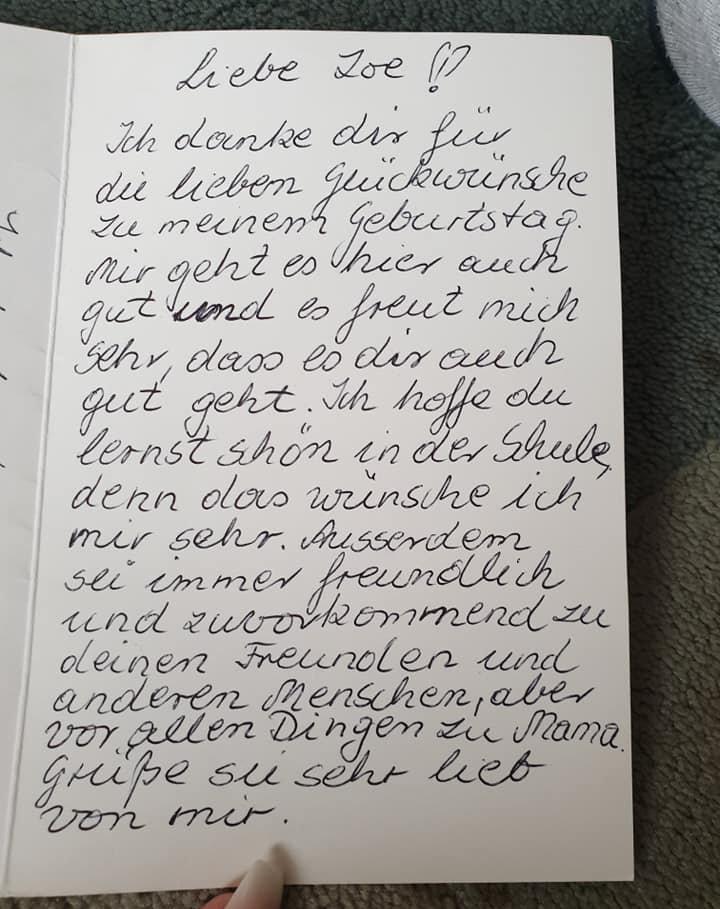 Liebe Zoe !!
Ich danke dir für
die lieben Glückwünsche
zu meinem Geburtstag.
Mir geht es hier auch
gut und es freut mich
sehr, dass es dir auch
gut geht. Ich hoffe du
lernst schön in der Schule,
denn das wünsche ich
mir sehr. Ausserdem
sei immer freundlich
und zuvorkommend zu
deinen Freunden und
anderen Menschen, aber
vor allen Dingen zu Mama.
Grüße sie sehr lieb
von mir.